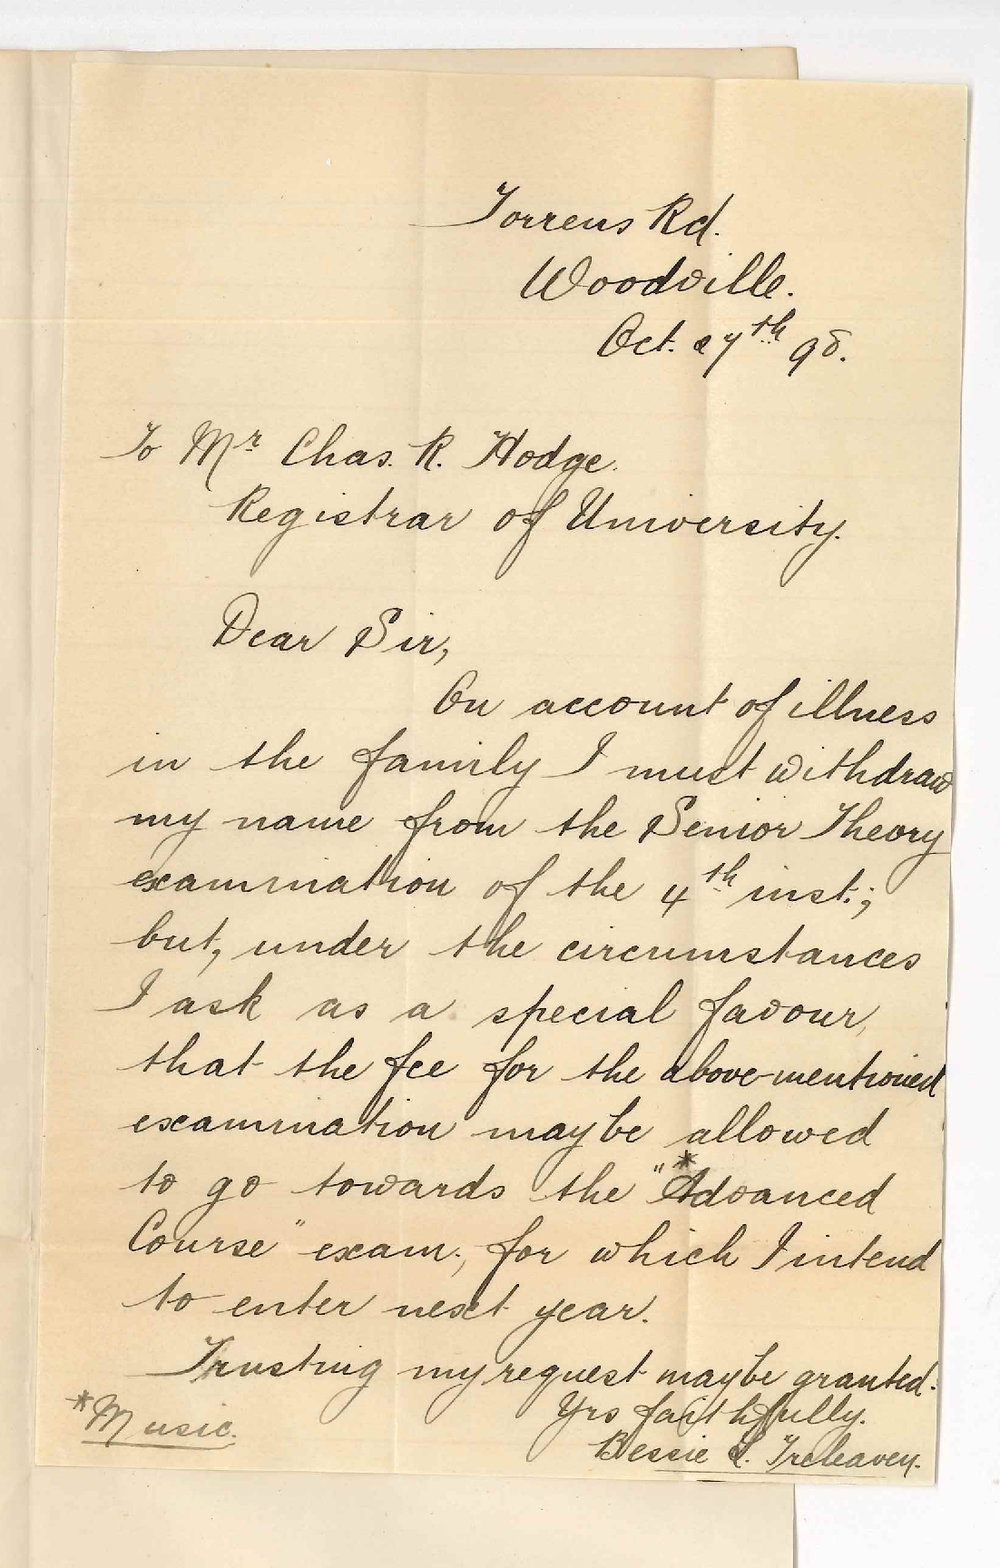 Torrens Rd.
Woodville.
Oct. 27th 98.
To Mr Chas. R. Hodge.
Registrar of University.
Dear Sir,
On account of illness
in the family I must withdraw
my name from the Senior Theory
examination of the 4th inst.;
but, under the circumstances
I ask as a special favour,
that the fee for the above-mentioned
examination may be allowed
to go towards the "*Advanced
Course" exam., for which I intend
to enter next year.
Trusting my request may be granted.
Yrs faithfully.
*Music.
Bessie L. Treleaven.